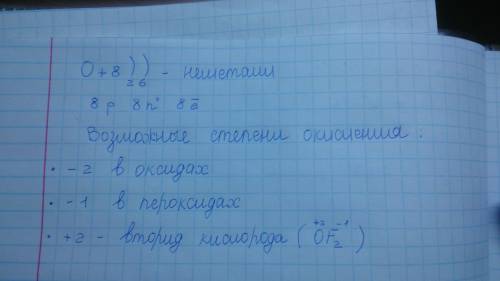 O +8 ))₂ ₆ - неметалл
8p 8n° 8ē
Возможные степени окисления:
• -2 в оксидах
• -1 в пероксидах
• +2 - вторид кислорода (O⁺²F₂⁻¹)